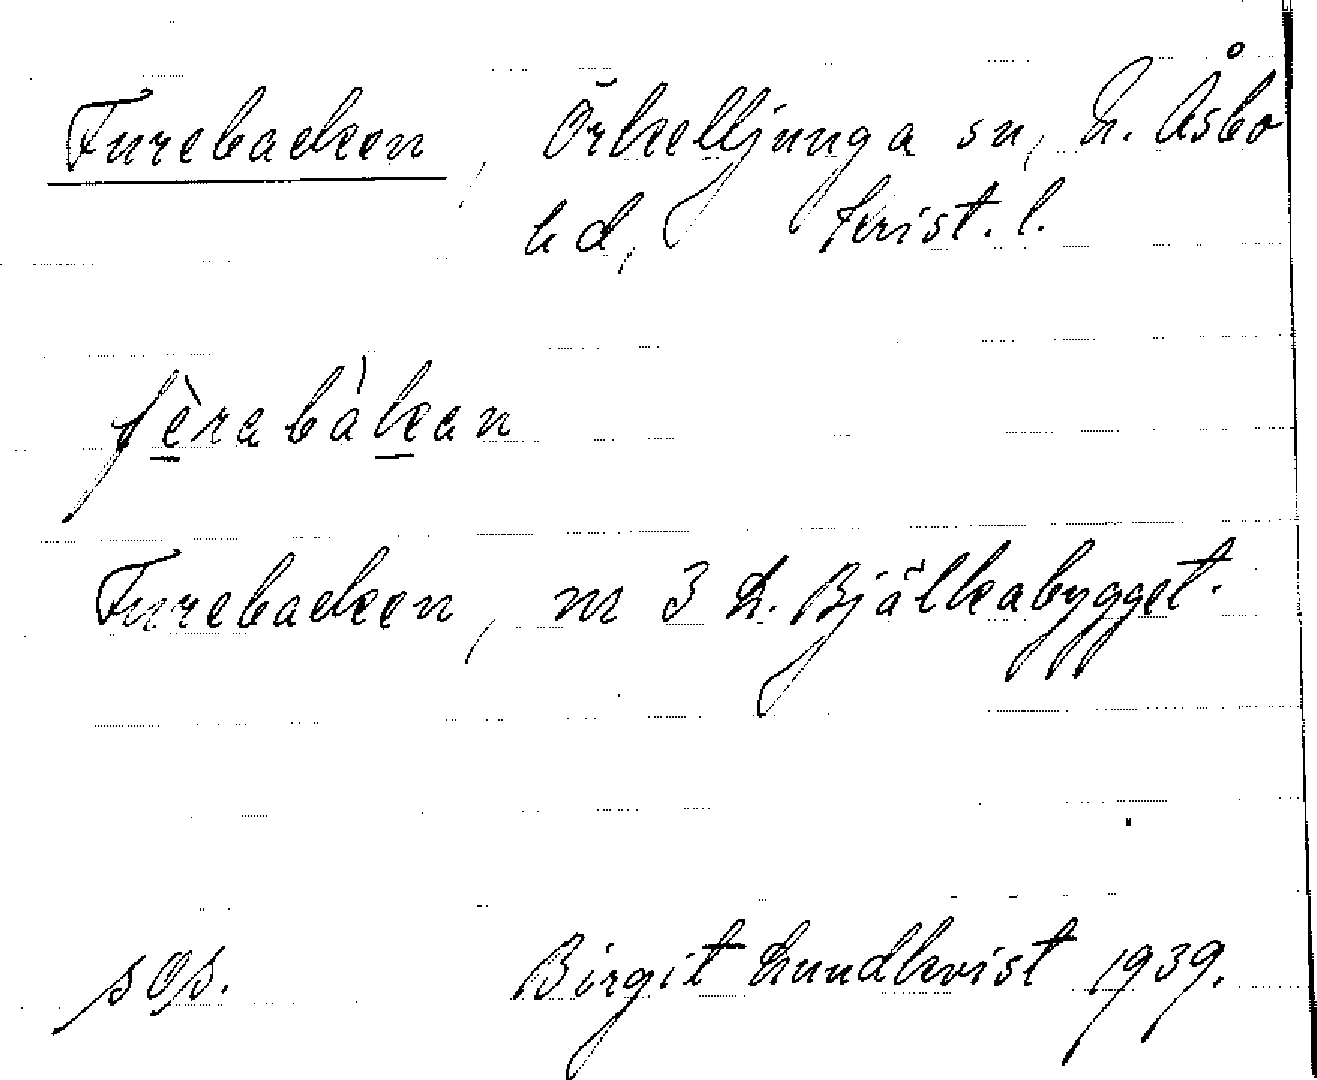 Furebacken, Örkelljunga sn, N. Åsbo
hd, Krist. l.
fèrabàkan
Furebacken, m 3 h. Bjälkabygget.
sos. Birgit Lundkvist 1939.